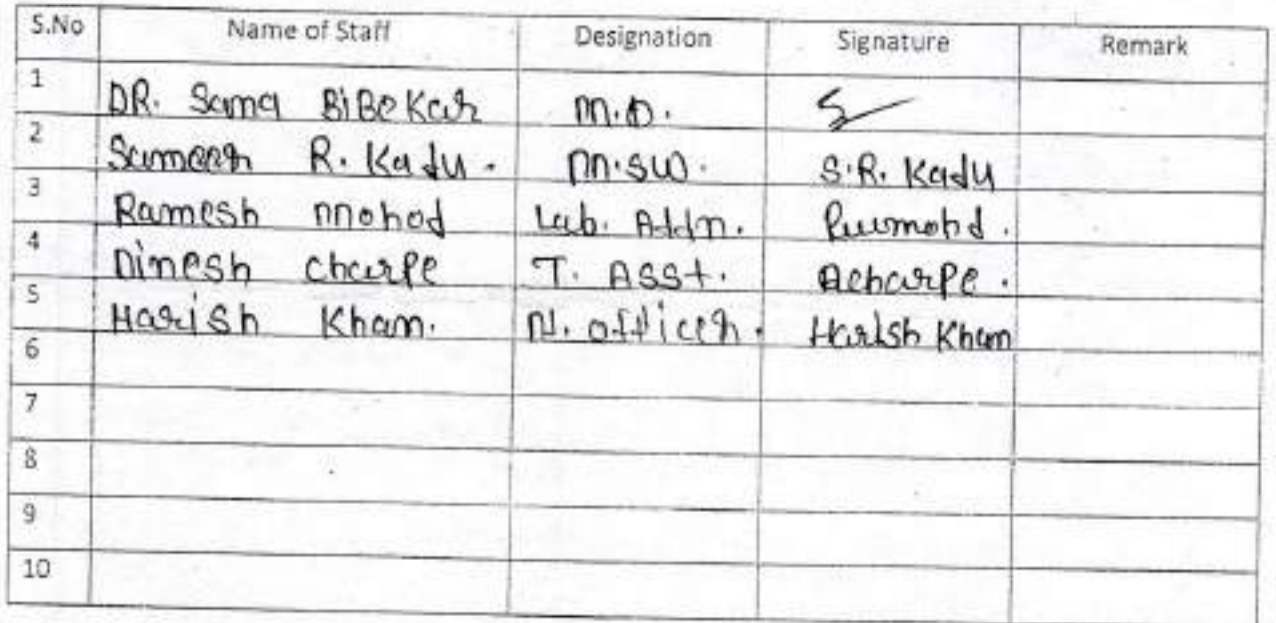 S.No Name of Staff Designation Signature Remark
1 DR. Sama BiBekar M.D.
2 Sameer R. Kadu. M.SW. S.R. Kadu
3 Ramesh Mohod Lab. Addn.
4 Dinesh Charpe T. Asst.
5 Harish Kham. N. officer. Harish Kham
6
7
8
9
10